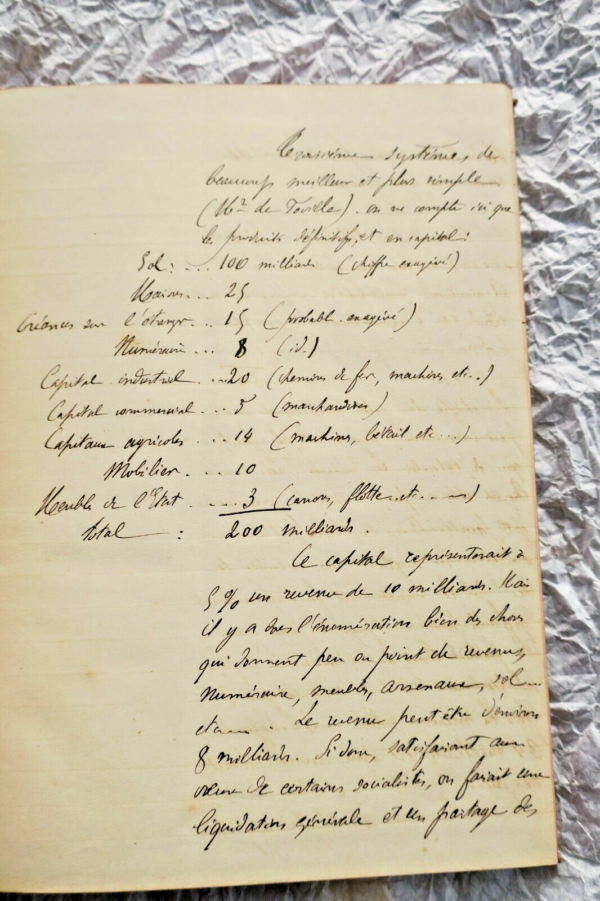 Troisième système de
beaucoup meilleur et plus simple
(Mr de Foville). on ne compte ici que
les produits définitifs, et en capital:
Sol: ... 100 milliards (chiffre exagéré)
Maisons ... 25
Créances sur l'étranger ... 15 (probabl. exagéré)
Numéraire ... 8 (id.)
Capital industriel ... 20 (chemins de fer, machines etc...)
Capital commercial ... 5 (marchandises)
Capitaux agricoles ... 14 (machines, bétail etc...)
Mobilier ... 10
Meubles de l'Etat ... 3 (canons, flotte.. etc......)
Total : 200 milliards.
Ce capital représenterait à
5% un revenu de 10 milliards. Mais
il y a dans l'énumération bien des choses
qui donnent peu ou point de revenus,
Numéraire, meubles, arsenaux, sol
etc.... Le revenu peut être d'environ
8 milliards. Si donc, satisfaisant aux
vœux de certains socialistes, on faisait une
liquidation générale et un partage des